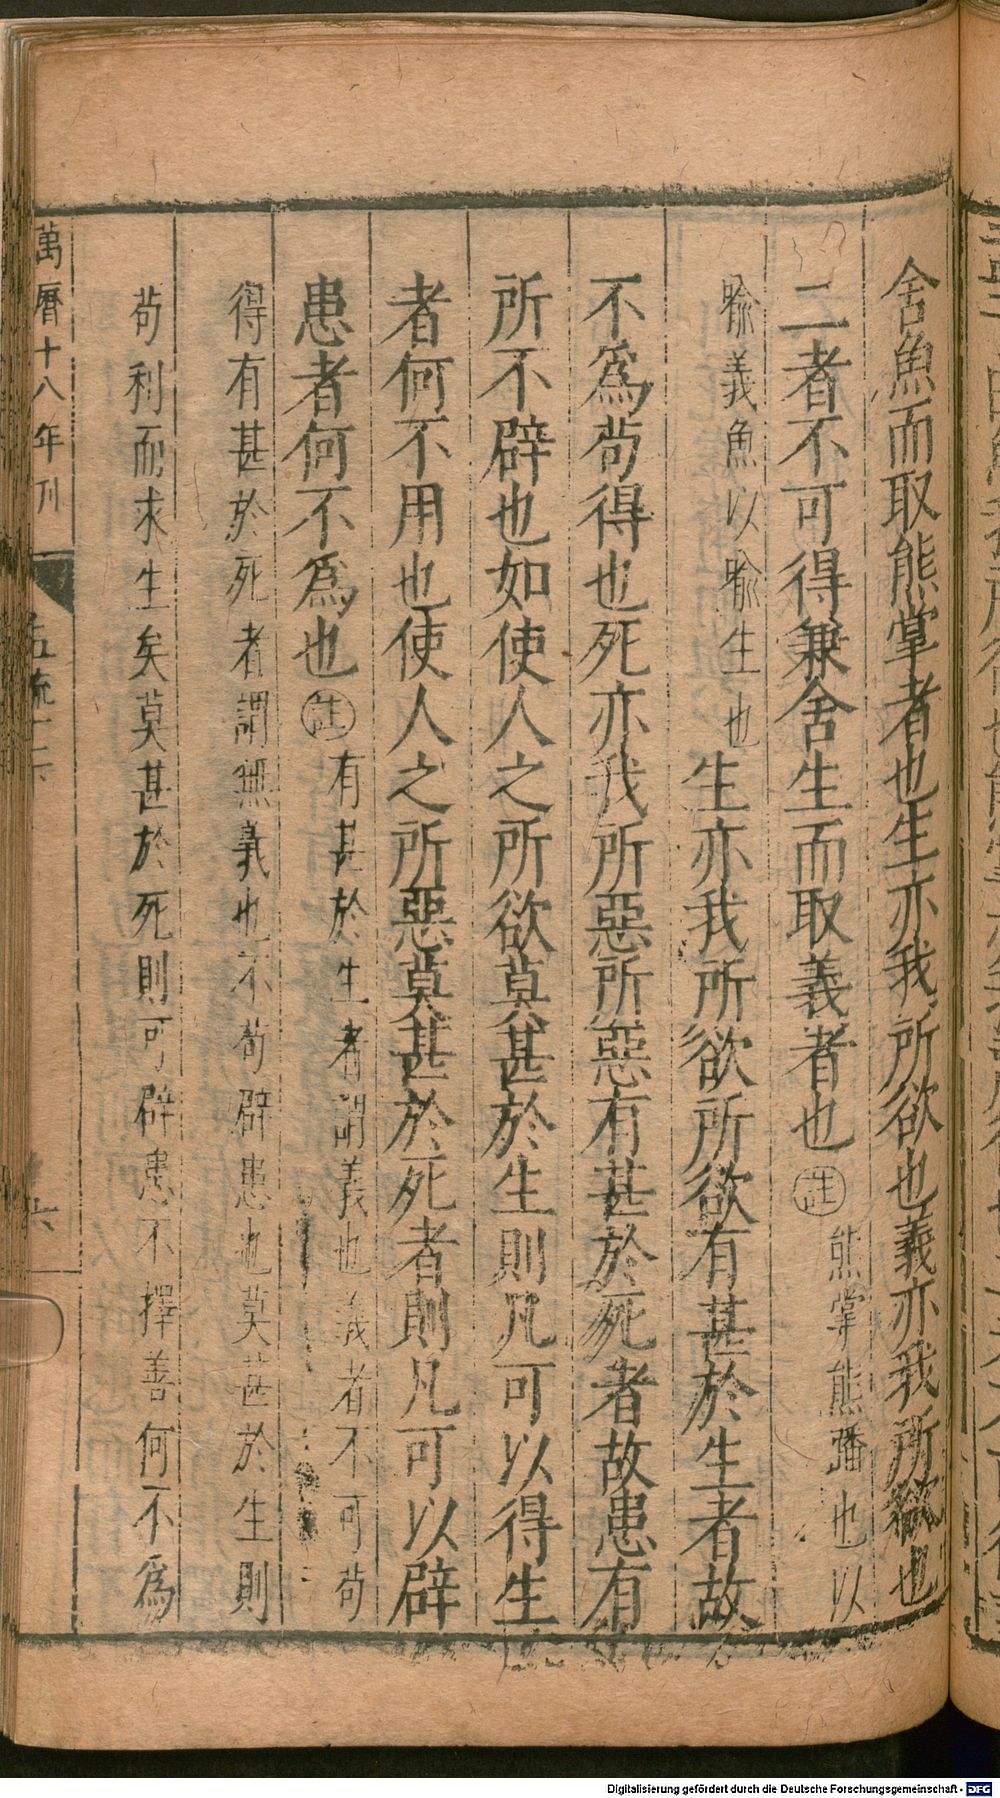 舍魚而取熊掌者也生亦我所欲也義亦我所欲也
二者不可得兼舍生而取義者也註熊掌熊蹯也以
喻義魚以喻生也生亦我所欲所欲有甚於生者故
不爲苟得也死亦我所惡所惡有甚於死者故患有
所不辟也如使人之所欲莫甚於生則凡可以得生
者何不用也使人之所惡莫甚於死者則凡可以辟
患者何不爲也註有甚於生者謂義也義者不可苟
得有甚於死者謂無義也不苟辟患也莫甚於生則
苟利而求生矣莫甚於死則可辟患不擇善何不爲
萬曆十八年刊
孟疏十一下
六
Digitalisierung gefördert durch die Deutsche Forschungsgemeinschaft - DFG